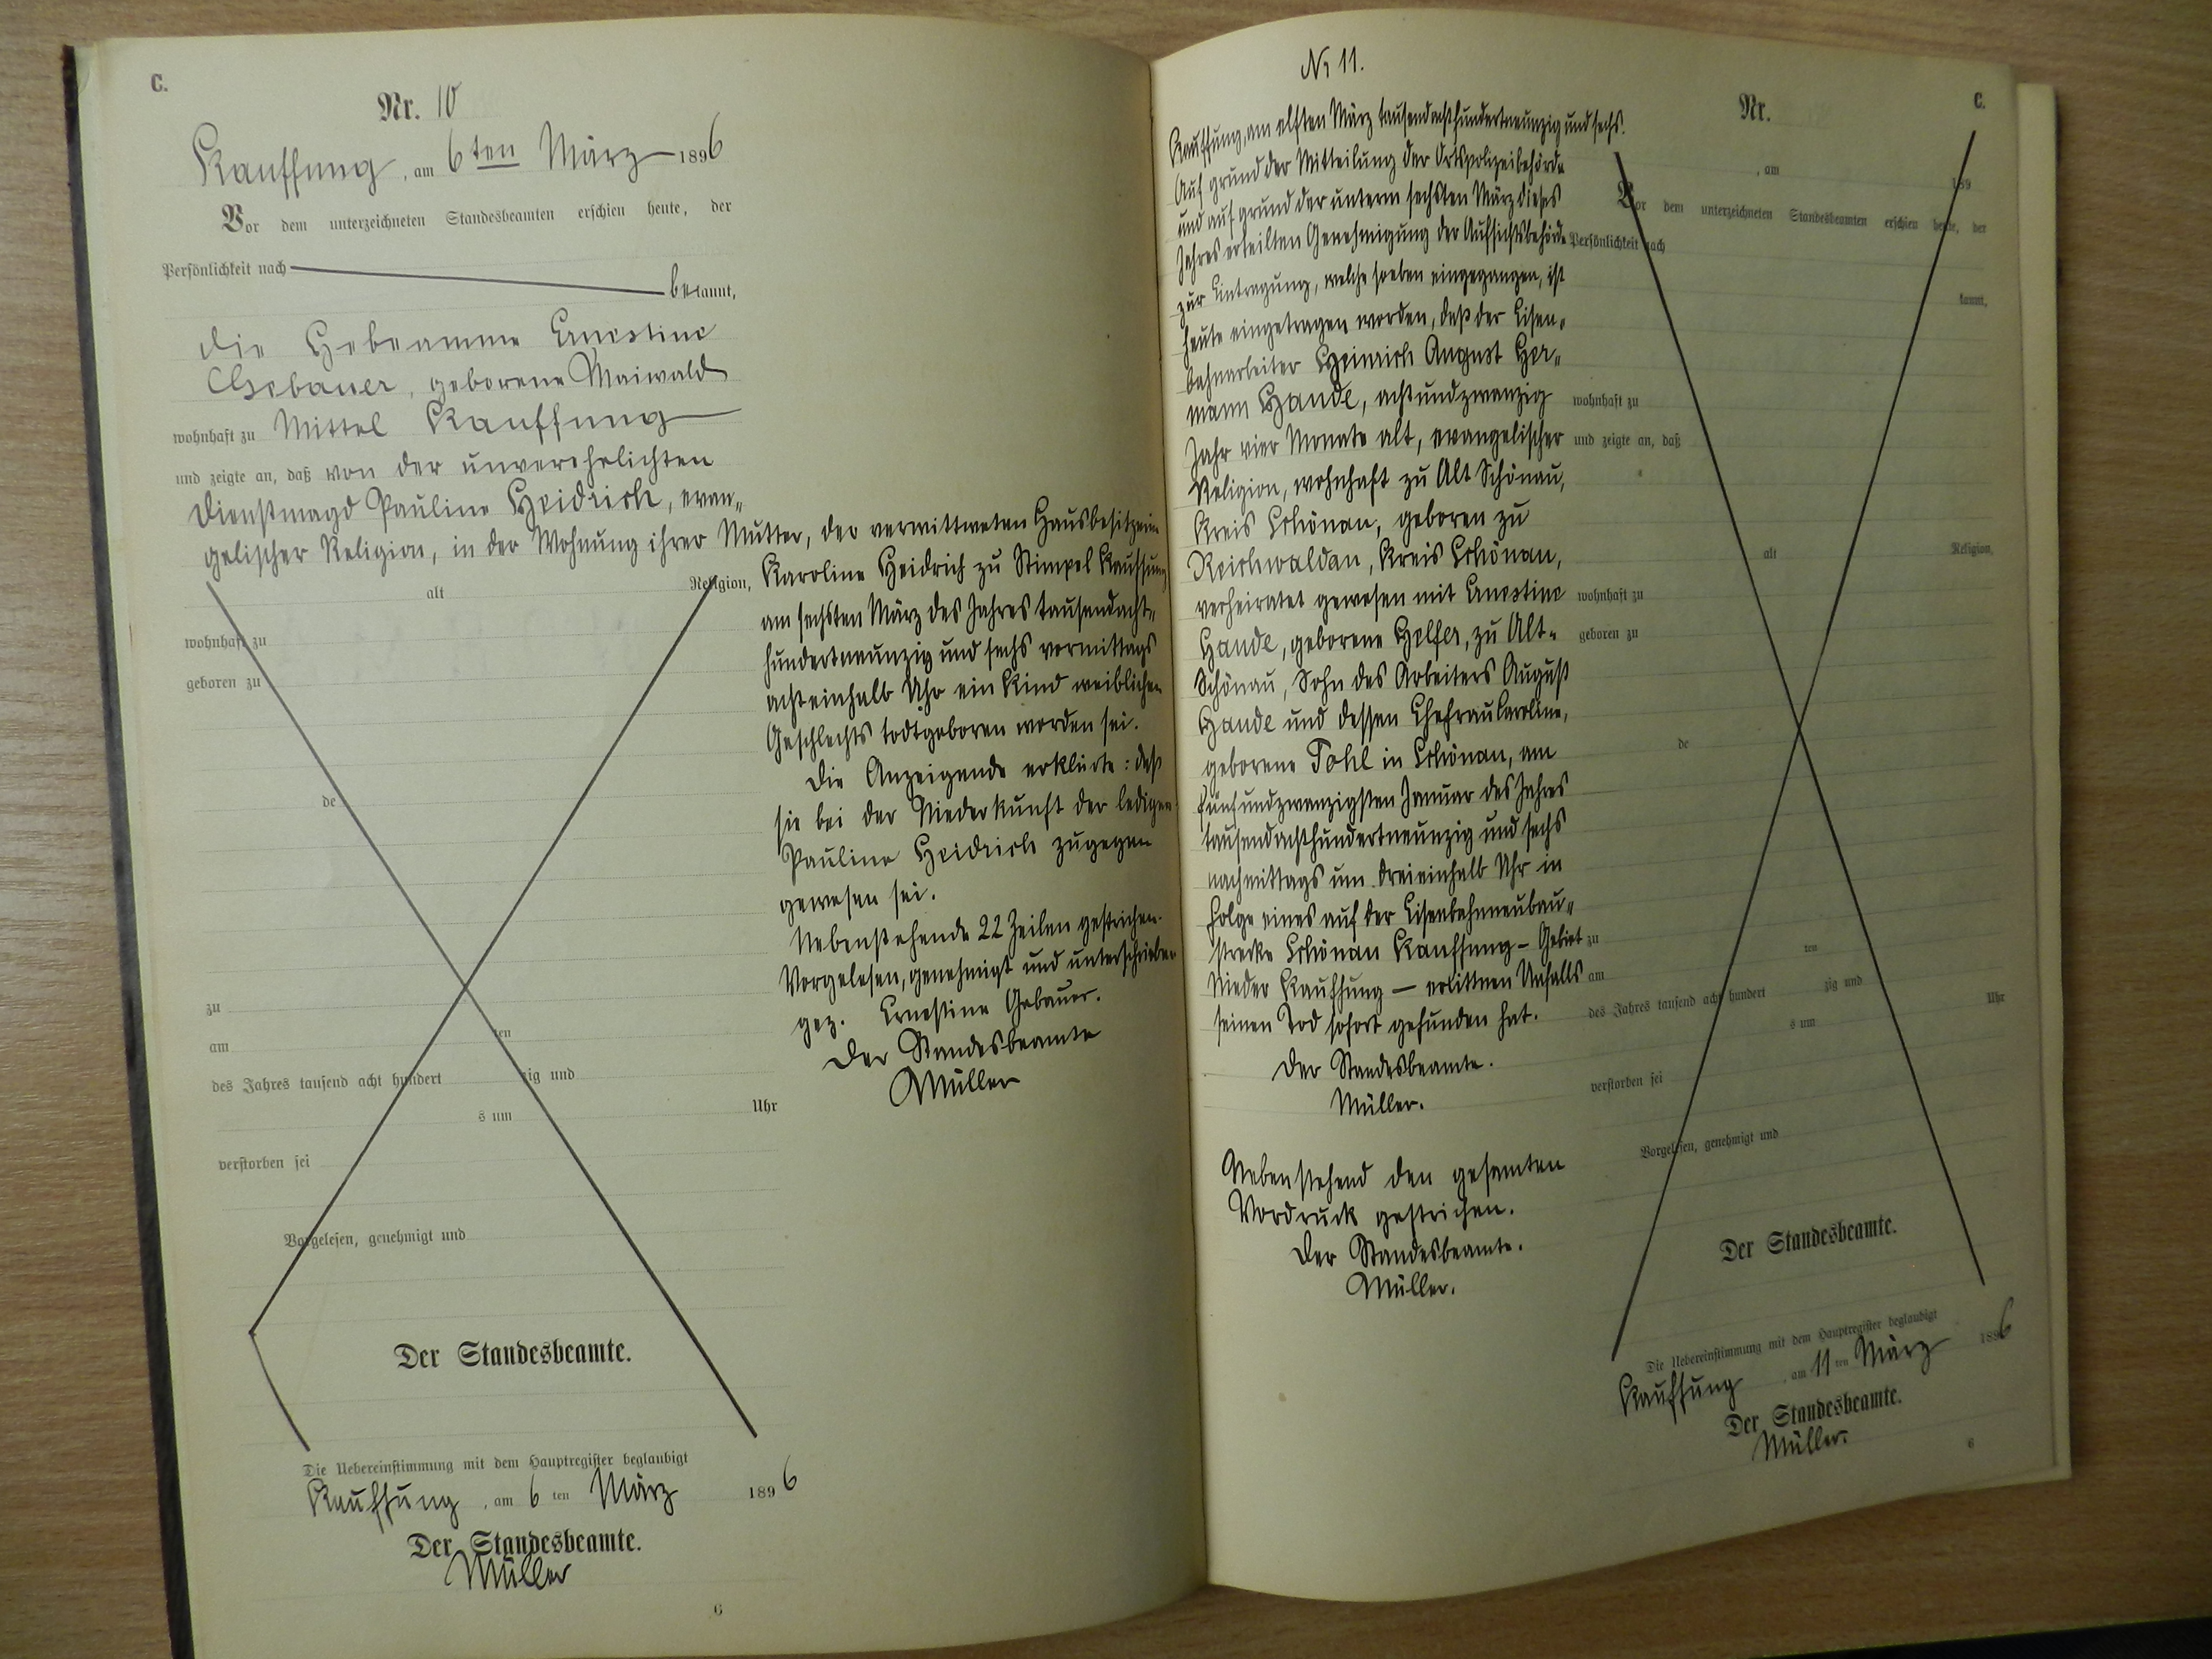 C.
Nr. 10
Kauffung, am 6ten März 1896
Vor dem unterzeichneten Standesbeamten erschien heute, der
Persönlichkeit nach
bekannt,
die Hebeamme Ernestine
Gebauer, geborene Maiwald
wohnhaft zu Mittel Kauffung
und zeigte an, daß von der unverehelichten
Dienstmagd Pauline Heidrich, evan-
gelischer Religion, in der Wohnung ihrer Mutter, der verwittweten Hausbesitzerin
Karoline Heidrich zu Stimpel Kauffung
am sechsten März des Jahres tausendacht-
hundertneunzig und sechs vormittags
achteinhalb Uhr ein Kind weiblichen
Geschlechts todtgeboren worden sei.
Die Anzeigende erklärte: daß
sie bei der Niederkunft der ledigen
Pauline Heidrich zugegen
gewesen sei.
Nebenstehende 22 Zeilen gestrichen.
Vorgelesen, genehmigt und unterschrieben
gez. Ernestine Gebauer.
Der Standesbeamte
Müller
alt Religion,
wohnhaft zu
geboren zu
de
zu
am ten
des Jahres tausend acht hundert zig und
s um Uhr
verstorben sei
Vorgelesen, genehmigt und
Der Standesbeamte.
Die Uebereinstimmung mit dem Hauptregister beglaubigt
Kauffung, am 6 ten März 1896
Der Standesbeamte.
Müller
6
Nr 11.
Kauffung, am elften März tausendachthundertneunzig und sechs.
Auf grund der Mitteilung der Ortspolizeibehörde
und auf grund der unterm sechsten März dieses
Jahres erteilten Genehmigung der Aufsichtsbehörde
zur Eintragung, welche soeben eingegangen, ist
heute eingetragen worden, daß der Eisen-
bahnarbeiter Heinrich August Her-
mann Hande, achtundzwanzig
Jahr vier Monate alt, evangelischer
Religion, wohnhaft zu Alt Schönau,
Kreis Schönau, geboren zu
Reichwaldau, Kreis Schönau,
verheiratet gewesen mit Ernestine
Hande, geborene Helfer, zu Alt-
Schönau, Sohn des Arbeiters August
Hande und dessen Ehefrau Karoline,
geborene Pohl in Schönau, am
fünfundzwanzigsten Januar des Jahres
tausendachthundertneunzig und sechs
nachmittags um dreieinhalb Uhr in
Folge eines auf der Eisenbahnneubau-
strecke Schönau Kauffung - Gebiet
Nieder Kauffung - erlittnen Unfalls
seinen Tod sofort gefunden hat.
Der Standesbeamte.
Müller.
Nebenstehend den gesamten
Vordruck gestrichen.
Der Standesbeamte.
Müller.
Nr. C.
, am 189
Vor dem unterzeichneten Standesbeamten erschien heute, der
Persönlichkeit nach
kannt,
wohnhaft zu
und zeigte an, daß
alt Religion,
wohnhaft zu
geboren zu
de
zu
am ten
des Jahres tausend acht hundert zig und
s um Uhr
verstorben sei
Vorgelesen, genehmigt und
Der Standesbeamte.
Die Uebereinstimmung mit dem Hauptregister beglaubigt
Kauffung, am 11 ten März 1896
Der Standesbeamte.
Müller.
6